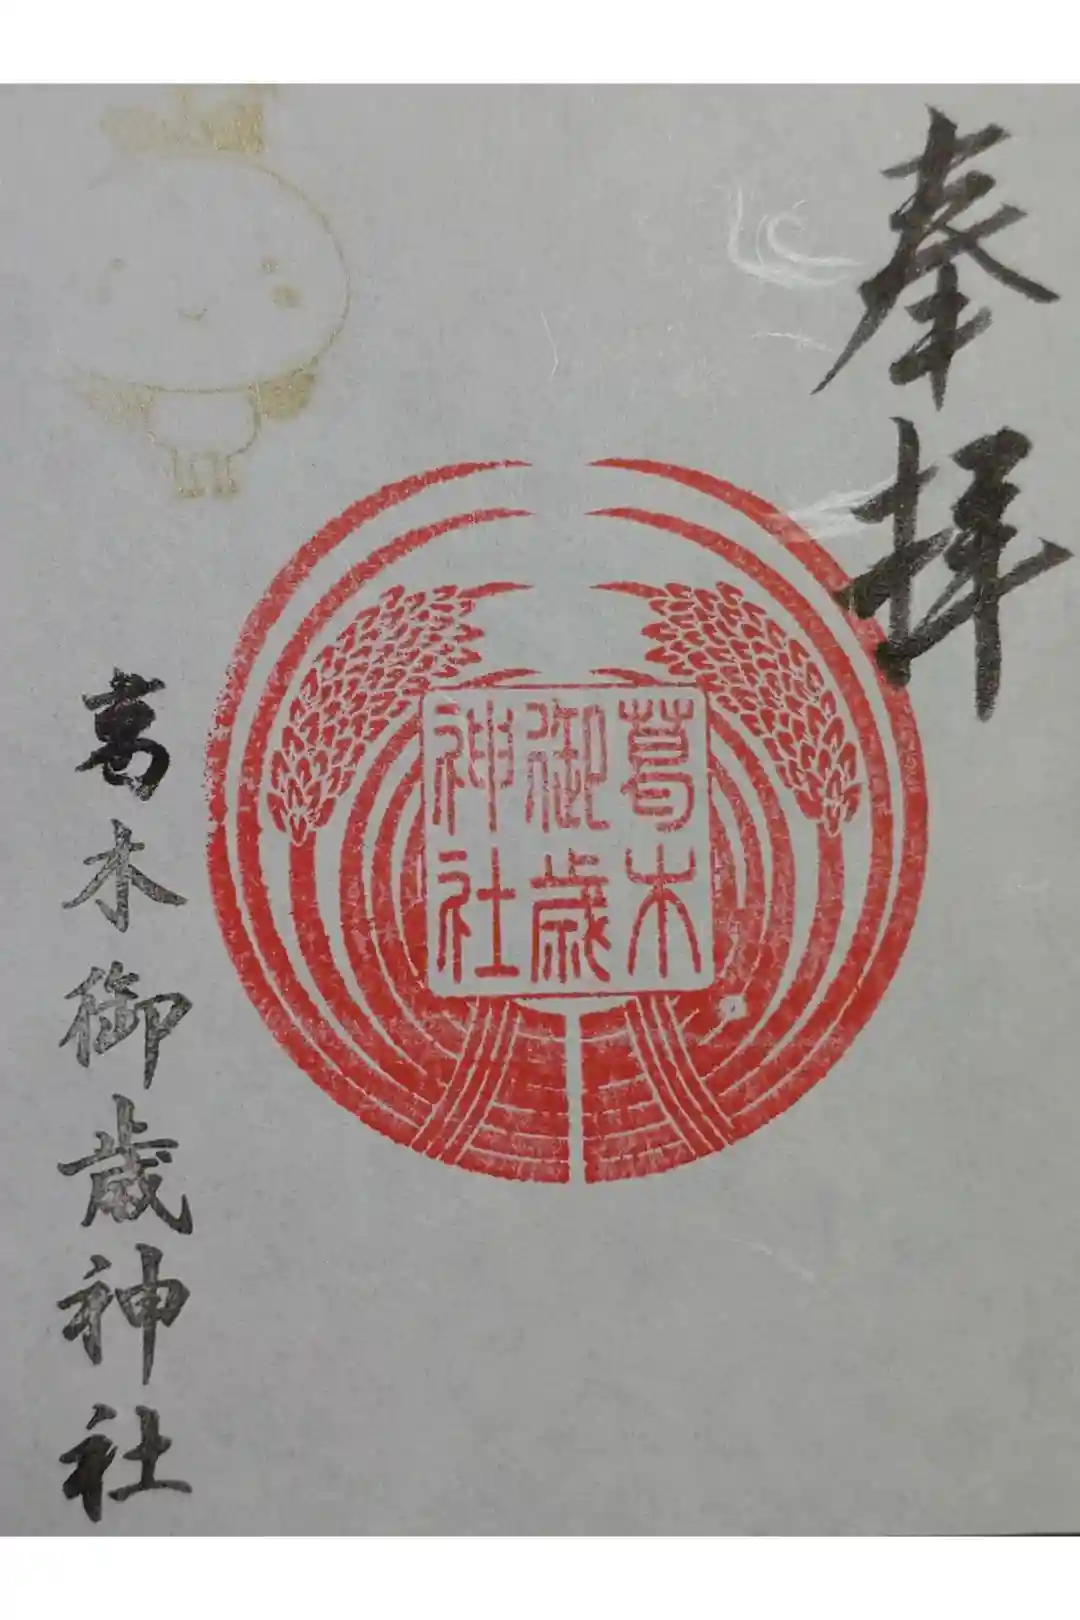 奉拝
葛木
御歳
神社
葛木御歳神社